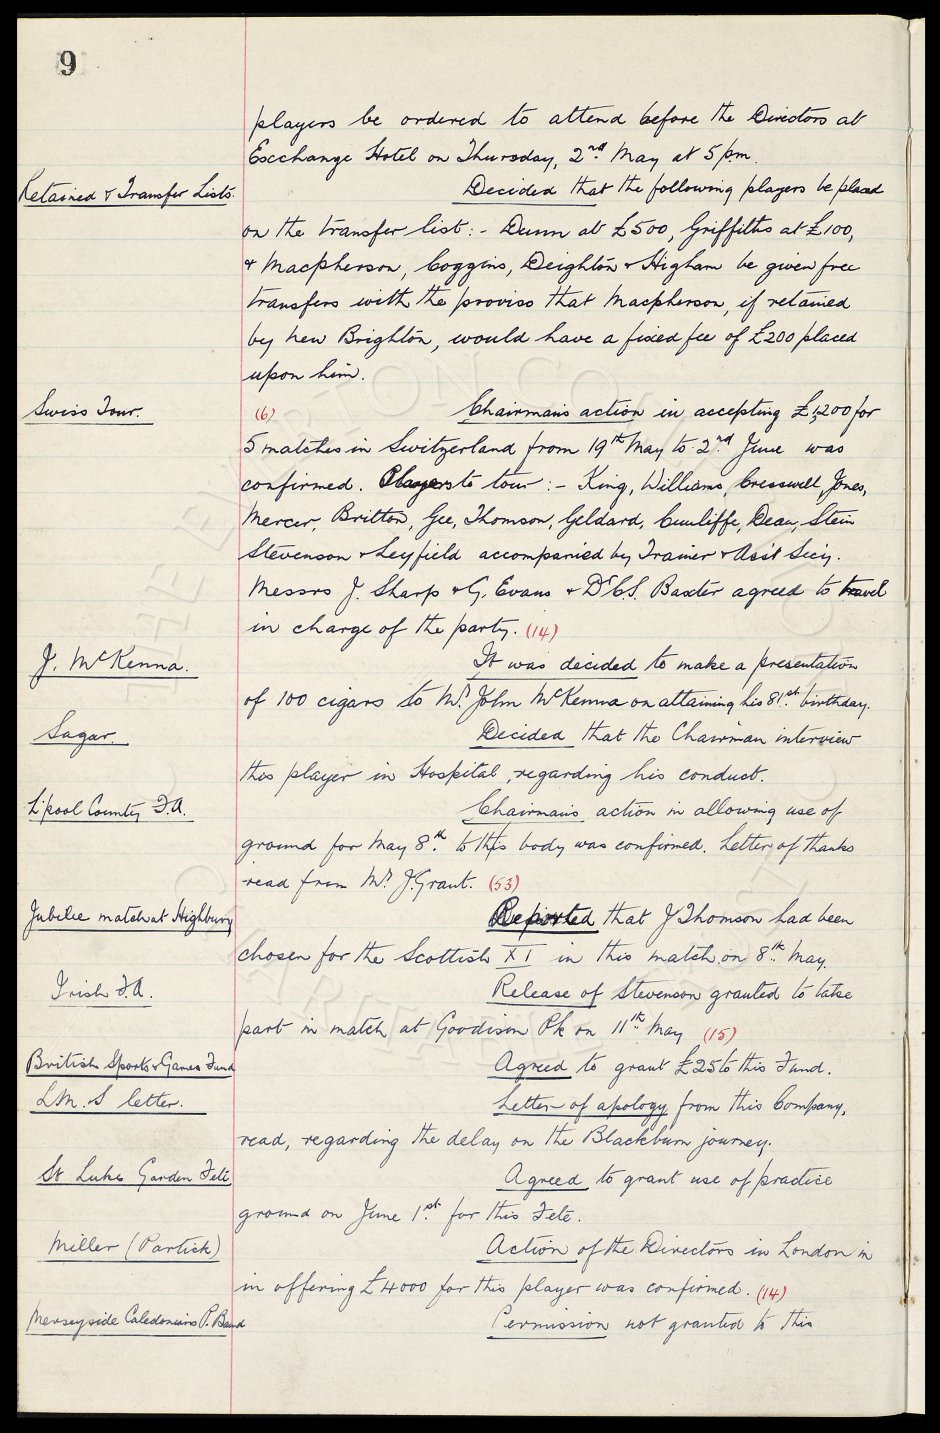 9
players be ordered to attend before the Directors at
Exchange Hotel on Thursday, 2nd May at 5 p.m.
Retained & Transfer Lists. Decided that the following players be placed
on the transfer list:- Dunn at £500, Griffiths at £100,
& Macpherson, Coggins, Deighton & Higham be given free
transfers with the proviso that Macpherson, if retained
by New Brighton, would have a fixed fee of £200 placed
upon him.
Swiss Tour. (6) Chairman's action in accepting £1,200 for
5 matches in Switzerland from 19th May to 2nd June was
confirmed. Players to tour:- King, Williams, Cresswell, Jones,
Mercer, Britton, Gee, Thomson, Geldard, Cunliffe, Dean, Stein
Stevenson & Leyfield accompanied by Trainer & Ass't Sec'y.
Messrs J. Sharp & G. Evans & Dr C.S. Baxter agreed to travel
in charge of the party. (14)
J. McKenna. It was decided to make a presentation
of 100 cigars to Mr John McKenna on attaining his 81st birthday.
Sagar. Decided that the Chairman interview
this player in Hospital, regarding his conduct.
L'pool County F.A. Chairman's action in allowing use of
ground for May 8th to this body was confirmed. Letter of thanks
read from Mr J. Grant. (53)
Jubilee match at Highbury Reported that J Thomson had been
chosen for the Scottish XI in this match on 8th May.
Irish F.A. Release of Stevenson granted to take
part in match at Goodison Pk on 11th May (15)
British Sports & Games Fund Agreed to grant £25 to this Fund.
L.M.S letter. Letter of apology from this Company,
read, regarding the delay on the Blackburn journey.
St Lukes Garden Fete Agreed to grant use of practice
ground on June 1st for this Fete.
Miller (Partick) Action of the Directors in London in
in offering £4000 for this player was confirmed. (14)
Merseyside Caledonians P. Band Permission not granted to this